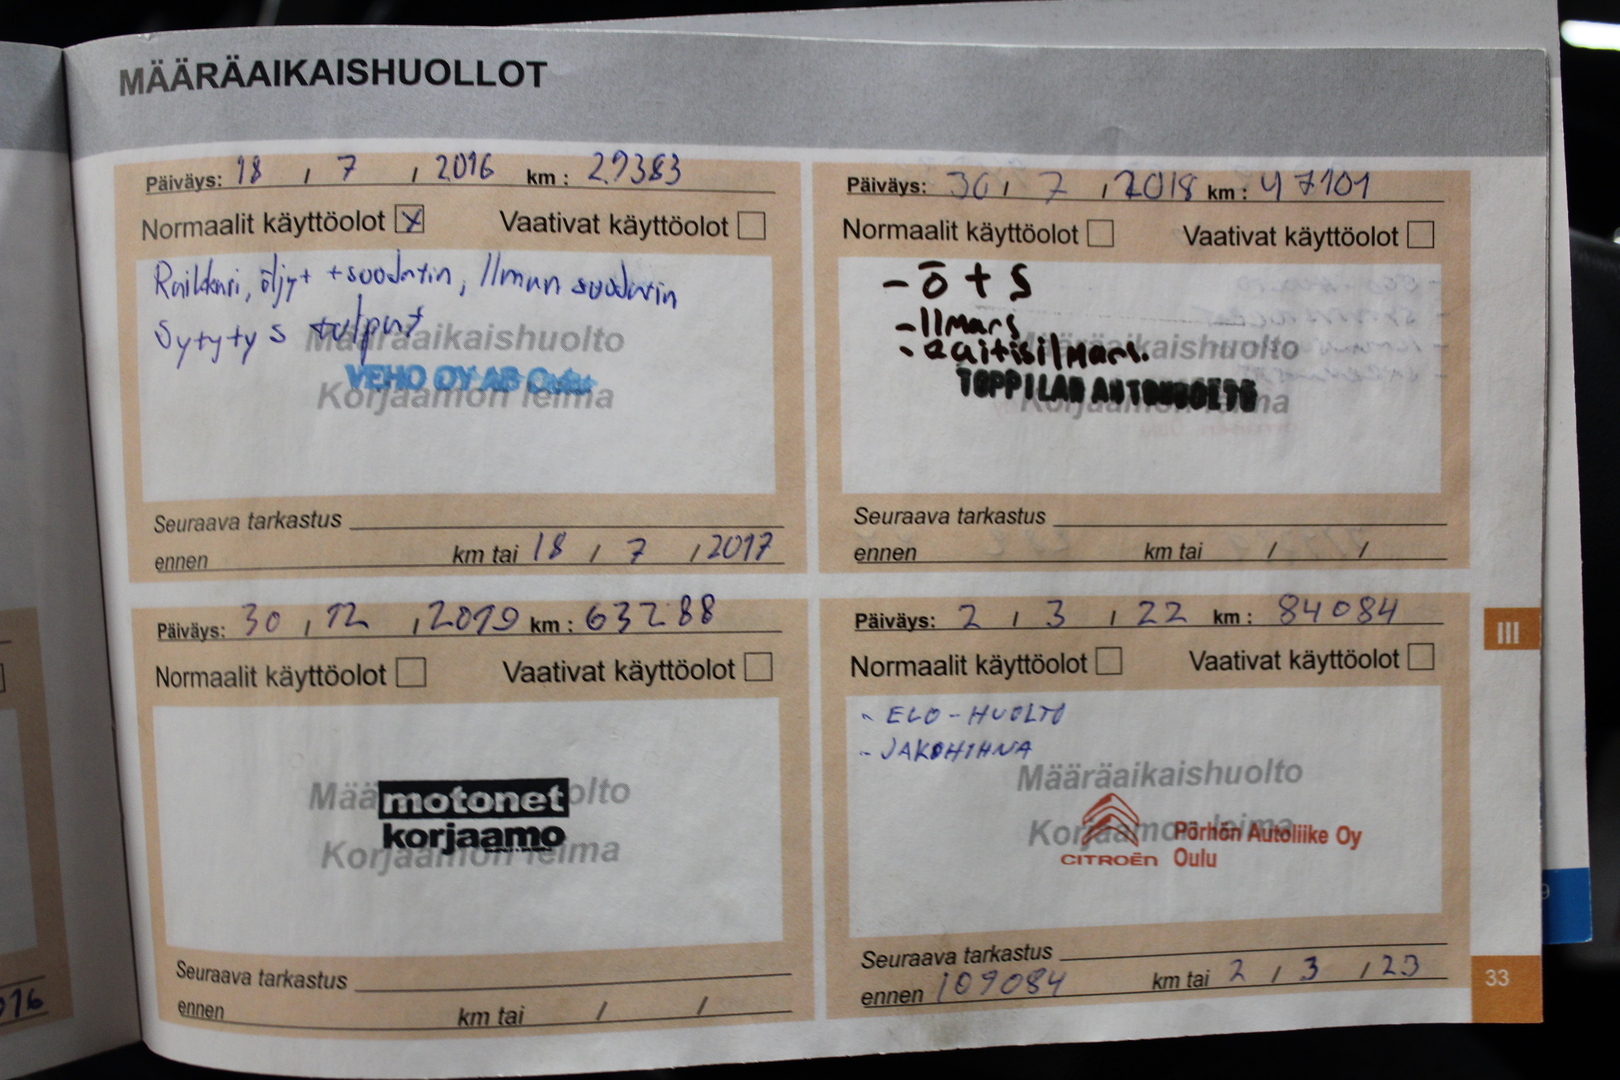 MÄÄRÄAIKAISHUOLLOT
Päiväys: 18 / 7 / 2016 km: 29383
Normaalit käyttöolot x Vaativat käyttöolot
öljyt + suodatin, Ilman suodatin
Sytytys tulpat
Määräaikaishuolto
VEHO OY AB Oulu
Korjaamon leima
Seuraava tarkastus
ennen km tai 18 / 7 / 2017
Päiväys: 30 / 7 / 2018 km: 47101
Normaalit käyttöolot Vaativat käyttöolot
- ö + S
- Ilmars
- Raitisilmars.
Määräaikaishuolto
TOPPILAN AUTOHUOLTO
Korjaamon leima
Seuraava tarkastus
ennen km tai / /
Päiväys: 30 / 12 / 2019 km: 63288
Normaalit käyttöolot Vaativat käyttöolot
Määräaikaishuolto
motonet
korjaamo
Korjaamon leima
Seuraava tarkastus
ennen km tai / /
Päiväys: 2 / 3 / 22 km: 84084
Normaalit käyttöolot Vaativat käyttöolot
- ECO-HUOLTO
- JAKOHIHNA
Määräaikaishuolto
Korjaamon leima
Pörhön Autoliike Oy
CITROËN Oulu
Seuraava tarkastus
ennen 109084 km tai 2 / 3 / 23
III
33
9
016